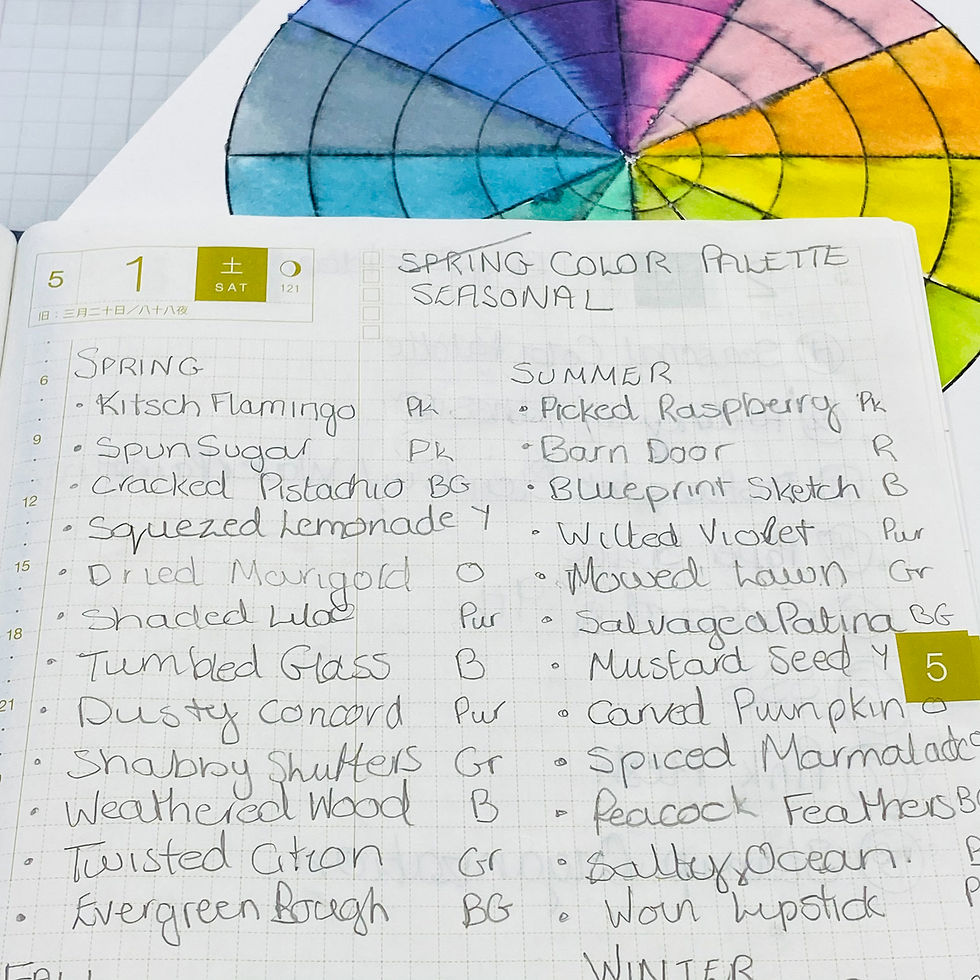 5 1 土 SAT 121
旧：三月二十日／八十八夜
SPRING COLOR PALETTE
SEASONAL
SPRING
6
• Kitsch Flamingo Pk
9
• Spun Sugar Pk
• Cracked Pistachio BG
12
• Squezed Lemonade Y
15
• Dried Marigold O
• Shaded Lilac Pur
18
• Tumbled Glass B
21
• Dusty Concord Pur
• Shabby Shutters Gr
• Weathered Wood B
• Twisted Citron Gr
• Evergreen Bough BG
FALL
SUMMER
• Picked Raspberry Pk
• Barn Door R
• Blueprint Sketch B
• Wilted Violet Pur
• Mowed Lawn Gr
• Salvaged Patina BG
• Mustard Seed Y
5
• Carved Pumpkin O
• Spiced Marmalade
• Peacock Feathers BG
• Salty Ocean
• Worn Lipstick P
WINTER